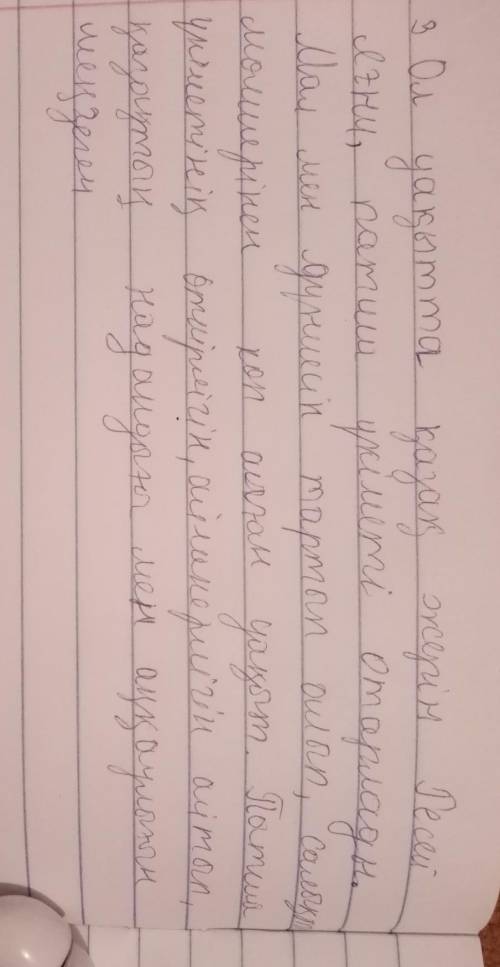 3 Ол уақытта қазақ жерін Ресей
яғни, патша үкіметі отарлады.
Мал мен дүниесін тартып алып, салықты
мөлшерінен көп алған уақыт. Патша
үкіметінің өткірлігін, айлакерлігін айтып,
қазақтың надандығы мен аңқаулығын
меңзеген